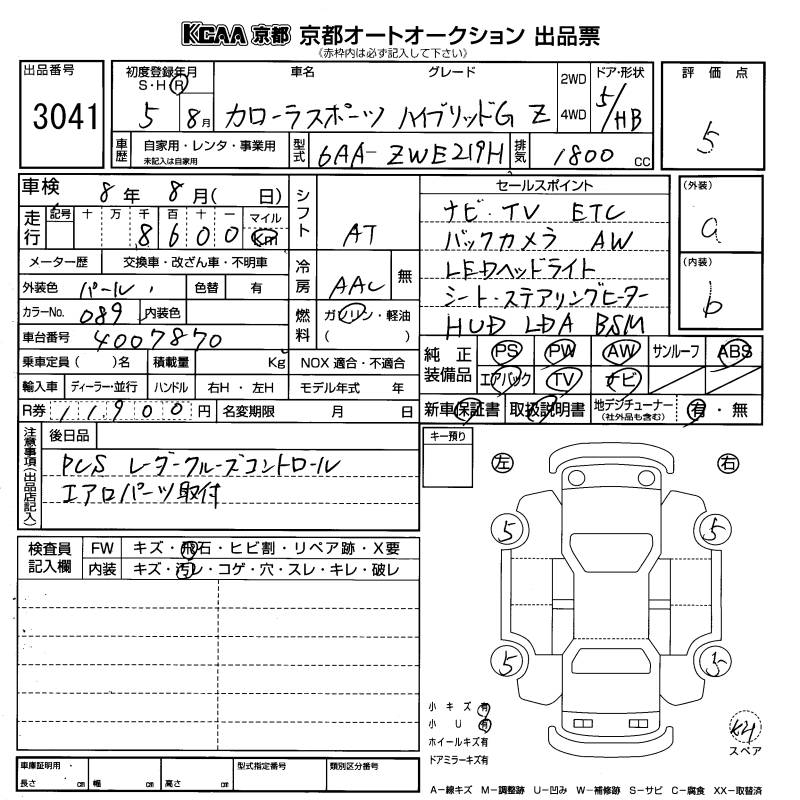 KCAA 京都 京都オートオークション 出品票
《赤枠内は必ず記入して下さい》
出品番号 3041
初度登録年月 S・H・R 5 8月
車名 グレード
カローラスポーツ ハイブリッドG Z
2WD 4WD
ドア・形状 5/HB
評価点 5
車歴 自家用・レンタ・事業用
未記入は自家用
型式 6AA-ZWE219H
排気 1800 CC
車検 8年 8月( 日)
走行 記号 十 万 千 百 十 一 マイル
8600 Km
シフト AT
メーター歴 交換車・改ざん車・不明車
冷房 AAC 無
外装色 パール 色替 有
カラーNo. 089 内装色
燃料 ガソリン・軽油
( )
車台番号 4007870
乗車定員( )名 積載量 Kg NOX 適合・不適合
輸入車 ディーラー・並行 ハンドル 右H・左H モデル年式 年
R券 11900円 名変期限 月 日
セールスポイント
ナビ・TV ETC
バックカメラ AW
LEDヘッドライト
シート・ステアリングヒーター
HUD LDA BSM
(外装) a
(内装) b
純正装備品 PS PW AW サンルーフ ABS
エアバック TV ナビ
新車保証書 取扱説明書 地デジチューナー (社外品も含む) 有・無
注意事項(出品店記入) 後日品
PCS レーダークルーズコントロール
エアロパーツ取付
キー預り
左 右
5 5
5 5
検査員記入欄 FW キズ・飛石・ヒビ割・リペア跡・X要
内装 キズ・汚レ・コゲ・穴・スレ・キレ・破レ
小キズ有
小U有
ホイールキズ有
ドアミラーキズ有
スペア
車庫証明用 長さ cm 幅 cm 高さ cm
型式指定番号 類別区分番号
A－線キズ M－調整跡 U－凹み W－補修跡 S－サビ C－腐食 XX－取替済